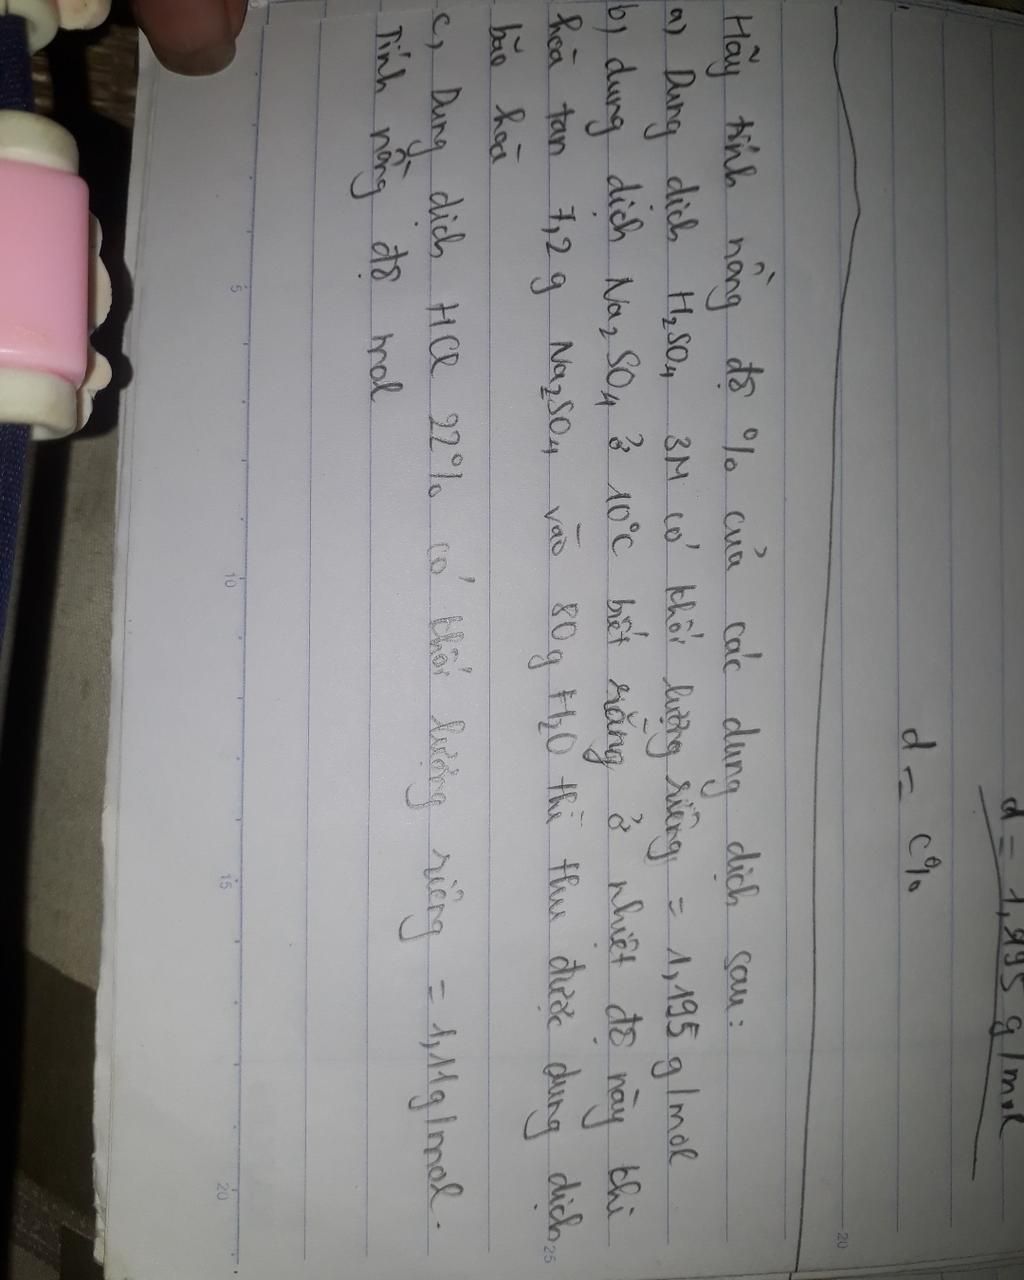 d = 1,995 g/mol
d = c%
Hãy tính nồng độ % của các dung dịch sau:
a, Dung dịch H₂SO₄ 3M có khối lượng riêng = 1,195 g/mol
b, dung dịch Na₂SO₄ ở 10°C biết rằng ở nhiệt độ này khi
hoà tan 7,2g Na₂SO₄ vào 80g H₂O thì thu được dung dịch
bão hoà
c, Dung dịch HCl 22% có khối lượng riêng = 1,11g/mol.
Tính nồng độ mol
5
10
15
20
25
20